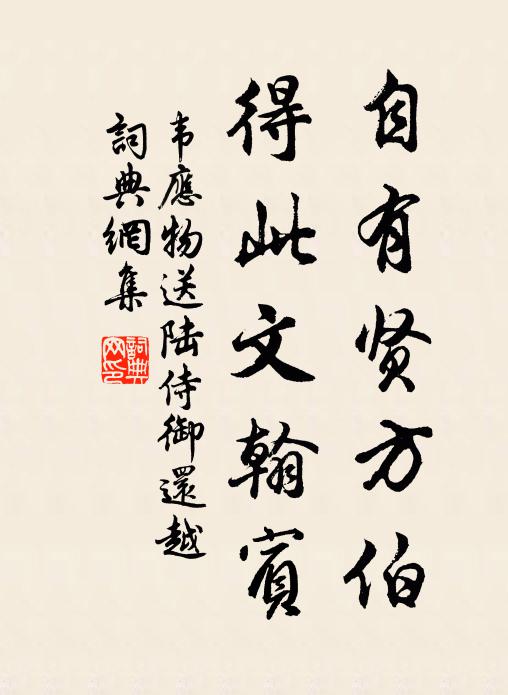 自有贤方伯
得此文翰賓
韦應物送陆侍御還越
詞典網集
詞典
网印